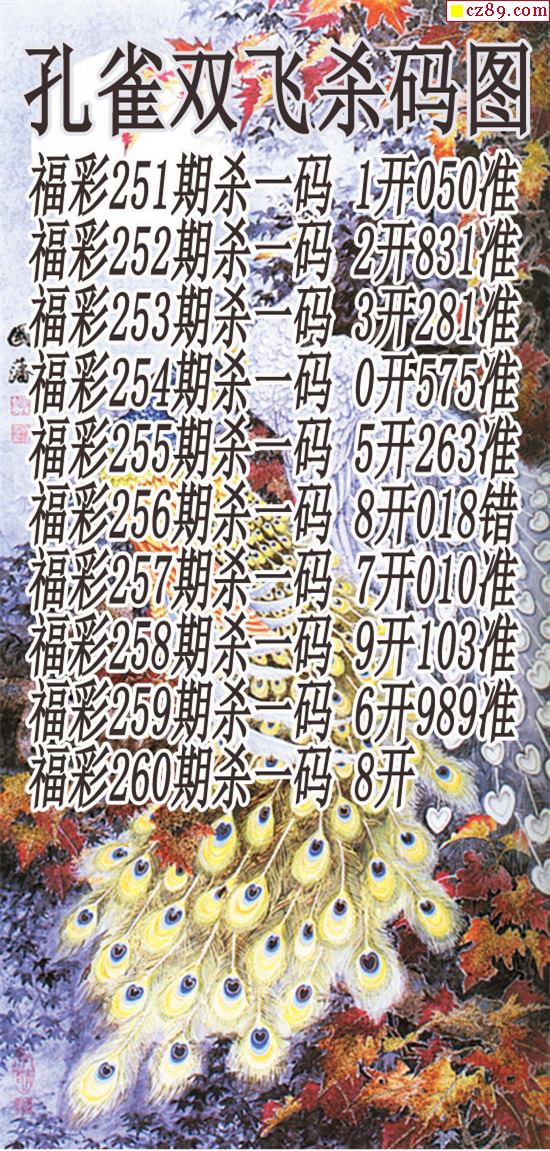 cz89.com
孔雀双飞杀码图
福彩251期杀一码 1开050准
福彩252期杀一码 2开831准
福彩253期杀一码 3开281准
福彩254期杀一码 0开575准
福彩255期杀一码 5开263准
福彩256期杀一码 8开018错
福彩257期杀一码 7开010准
福彩258期杀一码 9开103准
福彩259期杀一码 6开989准
福彩260期杀一码 8开